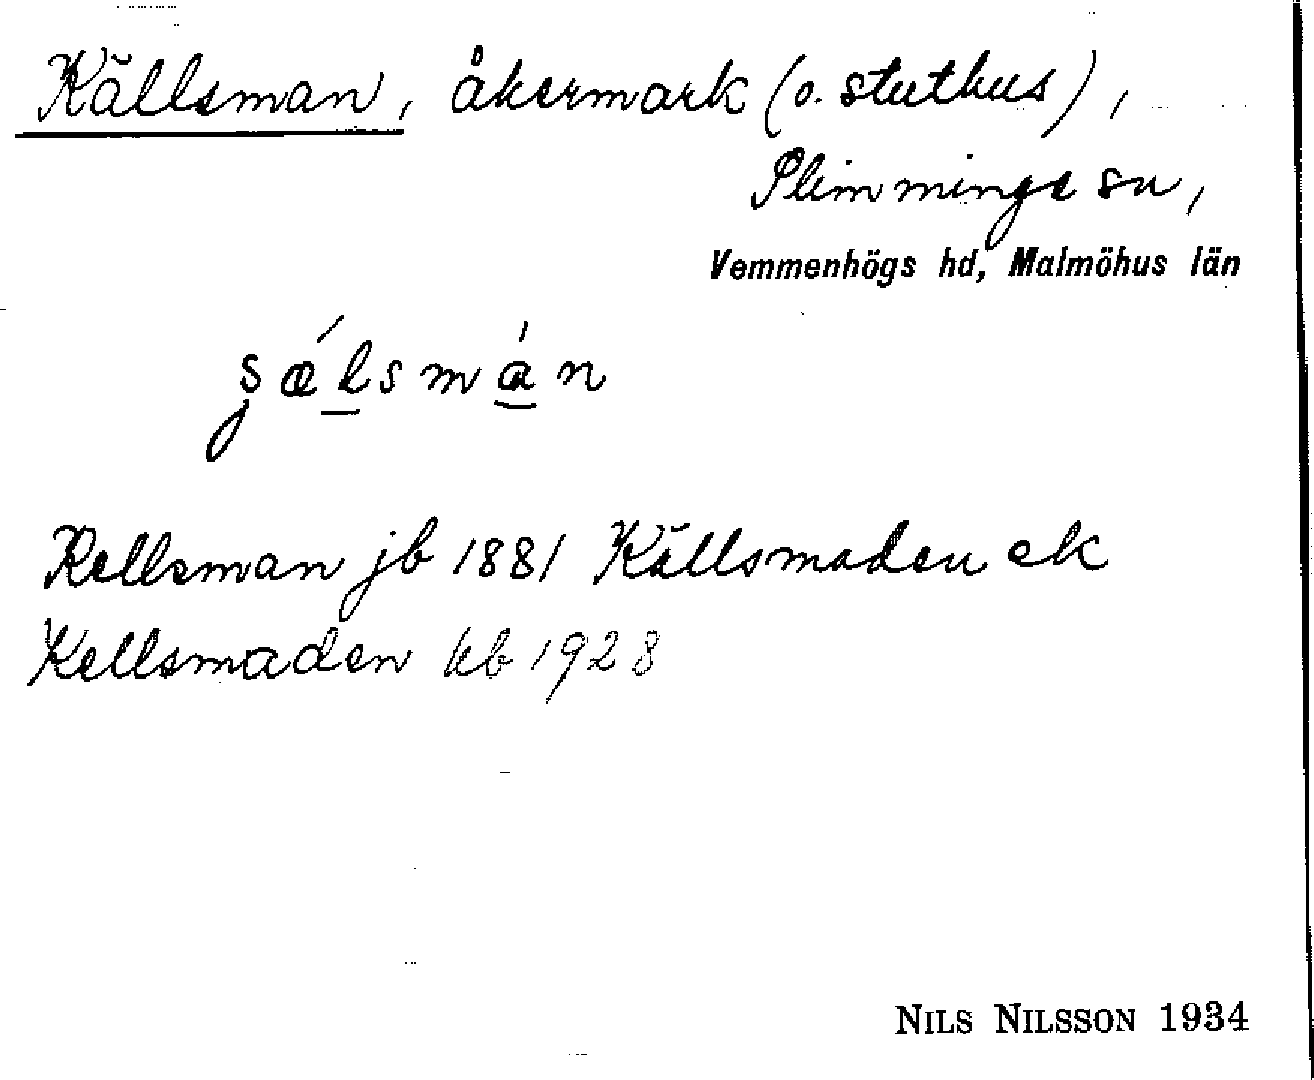 Källsman, åkermark (o. stuthus),
Slimminge sn,
Vemmenhögs hd, Malmöhus län
ʂǽlsmán
Kellsman jb 1881 Källsmaden ek
Kellsmaden kb 1928
NILS NILSSON 1934